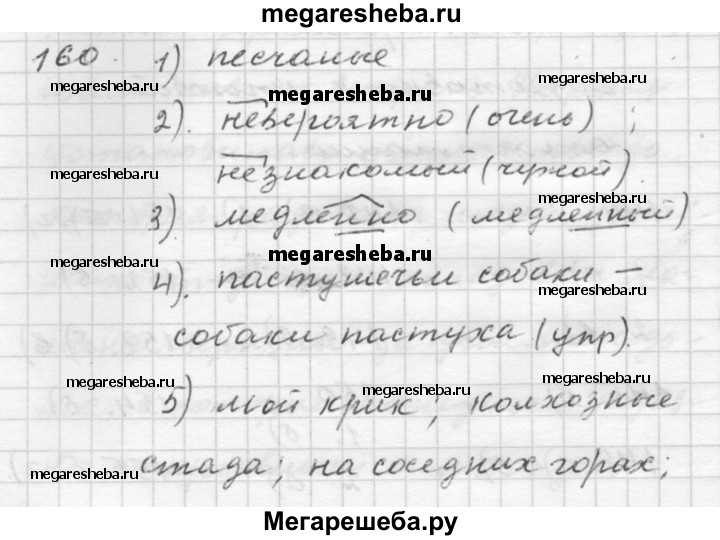 megaresheba.ru
160. 1) песчаные
megaresheba.ru
megaresheba.ru
megaresheba.ru
2). невероятно (очень) ;
megaresheba.ru
megaresheba.ru
незнакомый (чужой).
3). медленно (медленный)
megaresheba.ru
megaresheba.ru
megaresheba.ru
4). пастушечьи собаки –
megaresheba.ru
собаки пастуха (упр).
megaresheba.ru
megaresheba.ru
megaresheba.ru
5) мой крик; колхозные
стада; на соседних горах;
megaresheba.ru
megaresheba.ru
Мегарешеба.ру